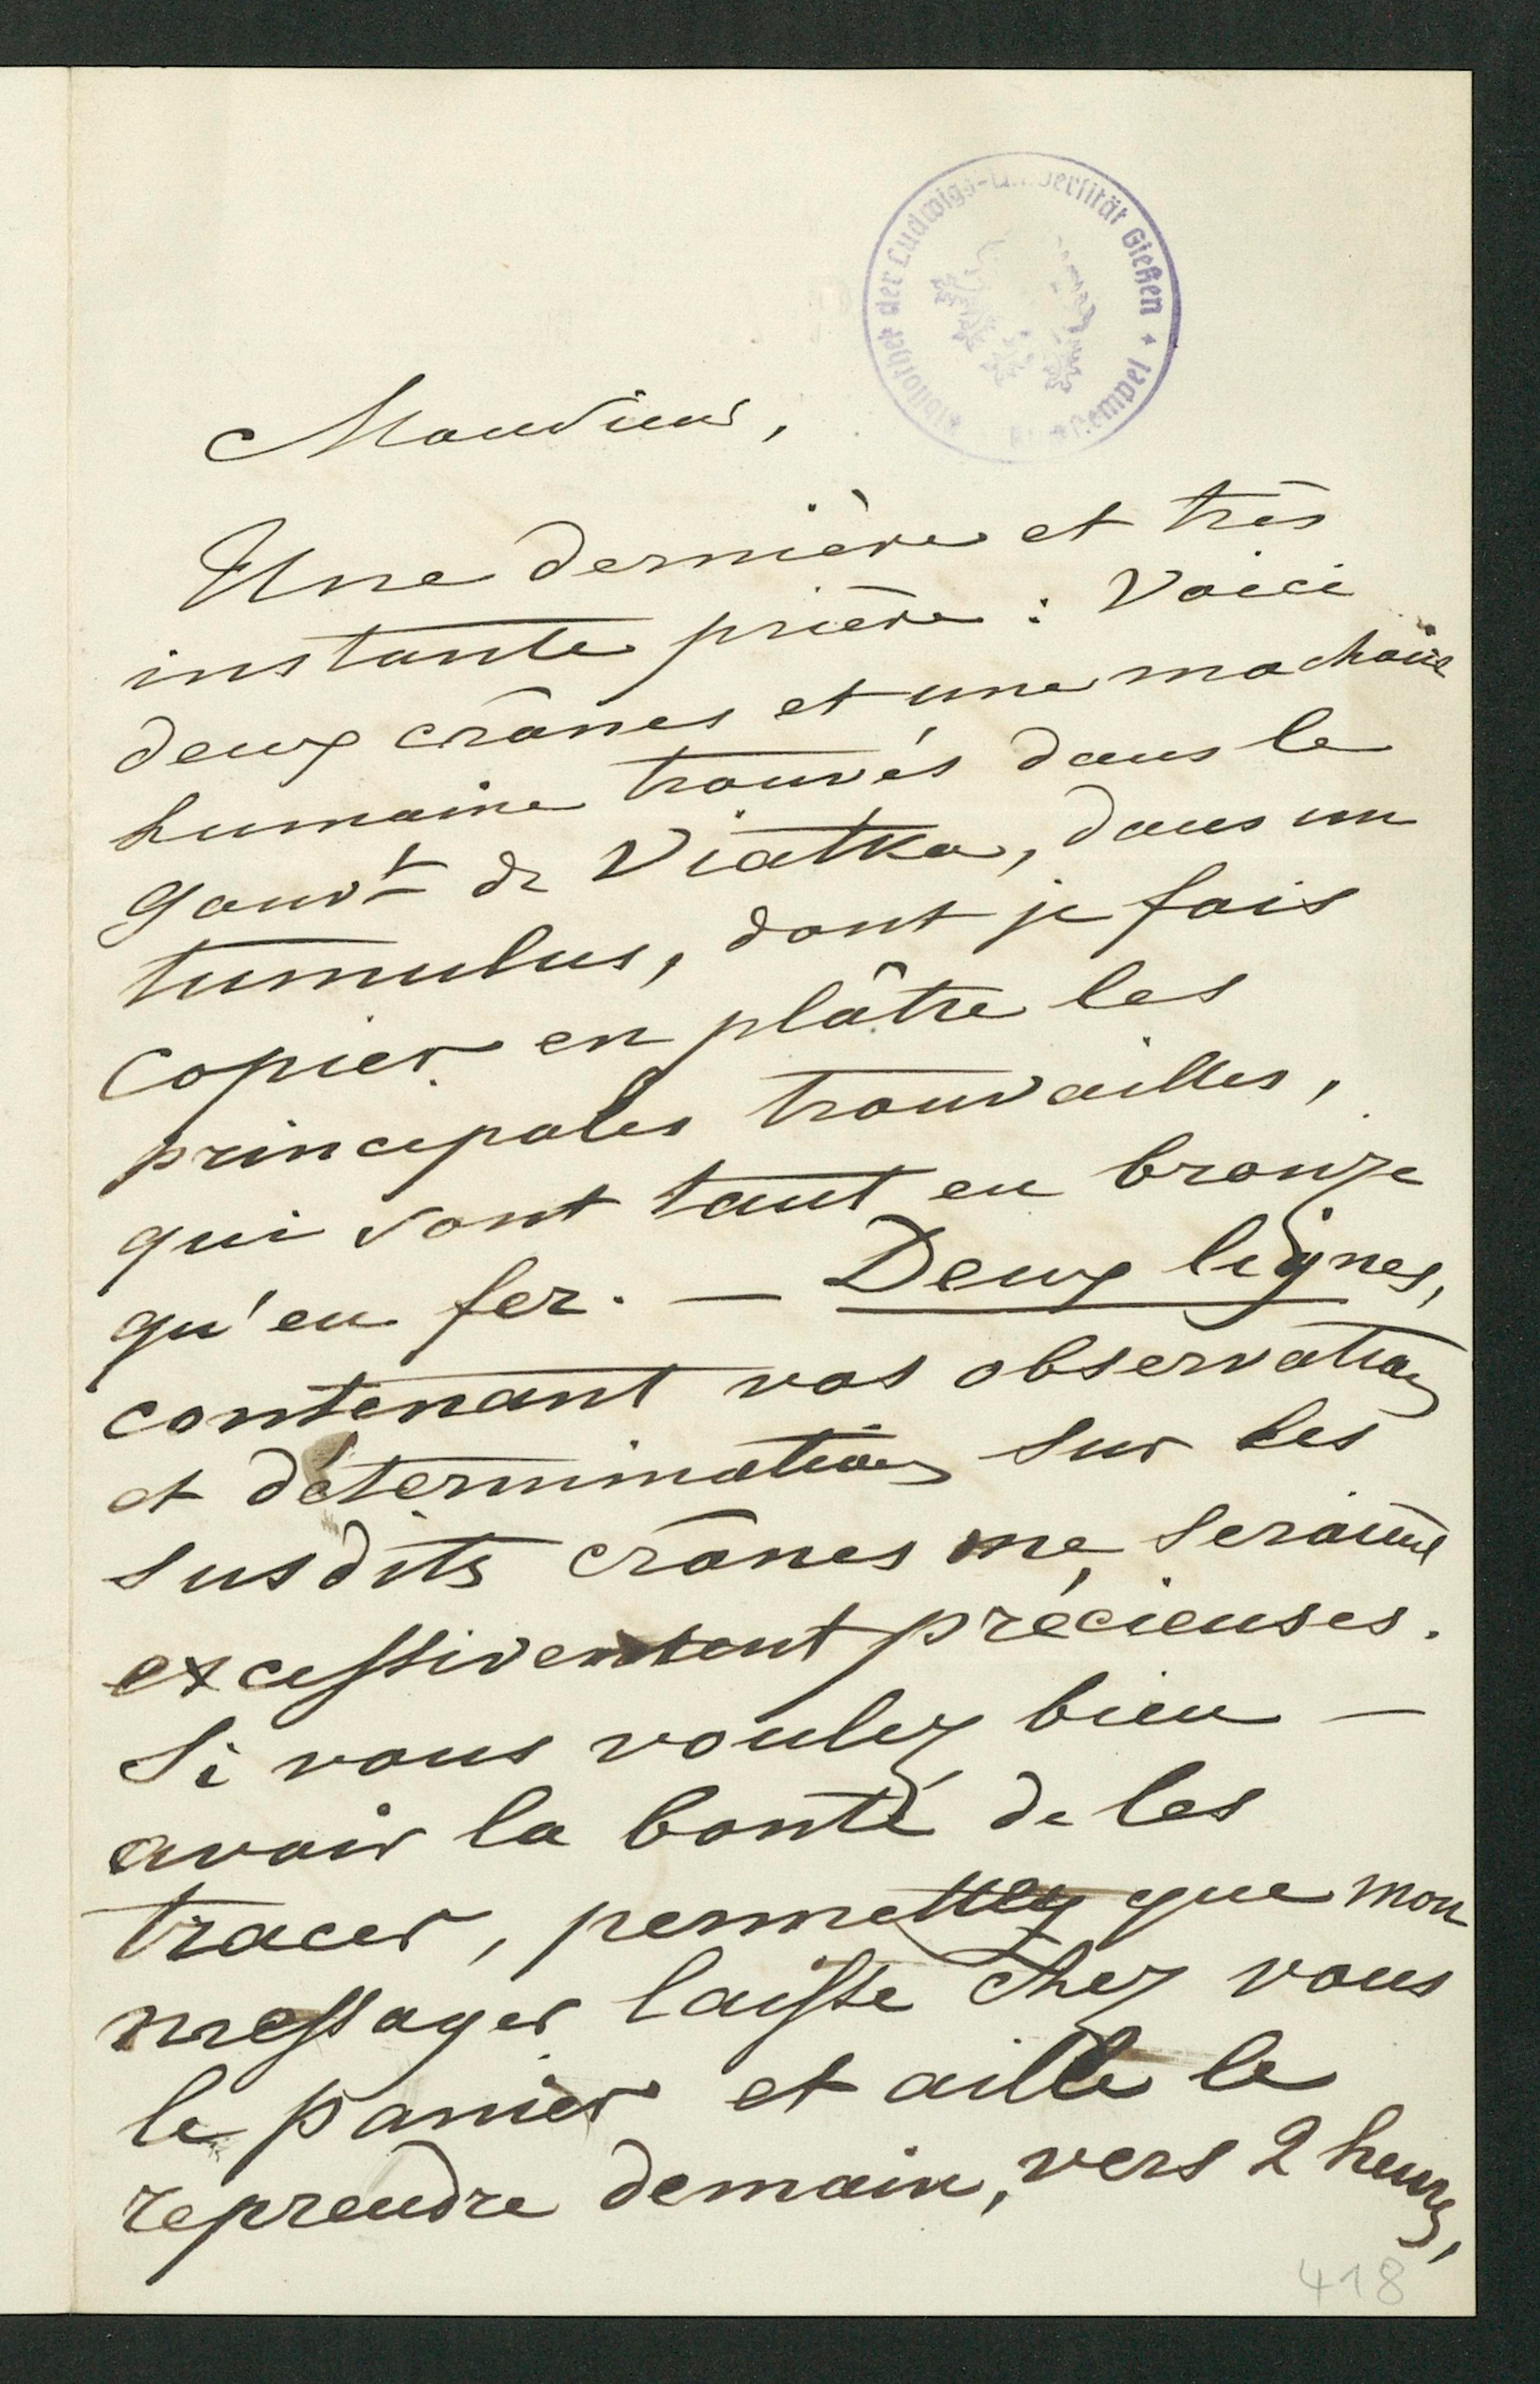 Bibliothek der Ludwigs-Universität Gießen
Monsieur,
Une dernière et très
instante prière : Voici
deux crânes et une machoire
humaine trouvés dans le
Gouvt de Viatka, dans un
tumulus, dont je fais
copier en plâtre les
principales trouvailles,
qui sont tant en bronze
qu'en fer. — Deux lignes,
contenant vos observations
et déterminations sur les
susdits crânes me seraient
excessivement précieuses.
Si vous voulez bien —
avoir la bonté de les
tracer, permettez que mon
messager laisse chez vous
le panier et aille le
reprendre demain, vers 2 heures,
418